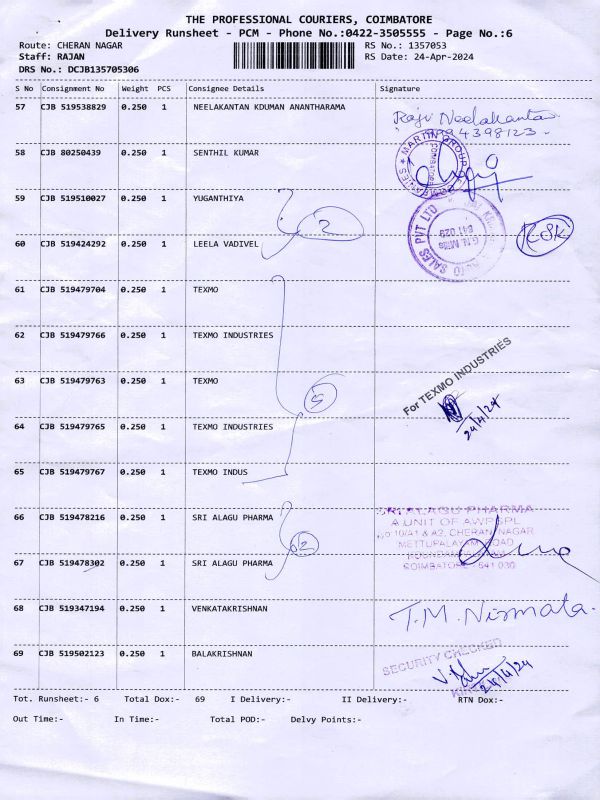 THE PROFESSIONAL COURIERS, COIMBATORE
Delivery Runsheet - PCM - Phone No.:0422-3505555 - Page No.:6
Route: CHERAN NAGAR RS No.: 1357053
Staff: RAJAN RS Date: 24-Apr-2024
DRS No.: DCJB135705306
S No Consignment No Weight PCS Consignee Details Signature
57 CJB 519538829 0.250 1 NEELAKANTAN KDUMAN ANANTHARAMA
Raju Neelakantan
9994398123
58 CJB 80250439 0.250 1 SENTHIL KUMAR
MARTIN GROUP
59 CJB 519510027 0.250 1 YUGANTHIYA
2
SALES PVT LTD
G.N. Mills
641 029
RSK
60 CJB 519424292 0.250 1 LEELA VADIVEL
61 CJB 519479704 0.250 1 TEXMO
62 CJB 519479766 0.250 1 TEXMO INDUSTRIES
For TEXMO INDUSTRIES
63 CJB 519479763 0.250 1 TEXMO
5
24/4/24
64 CJB 519479765 0.250 1 TEXMO INDUSTRIES
65 CJB 519479767 0.250 1 TEXMO INDUS
66 CJB 519478216 0.250 1 SRI ALAGU PHARMA
2
SRI ALAGU PHARMA
A UNIT OF AWPSPL
No 10/A1 & A2, CHERAN NAGAR
METTUPALAYAM ROAD
COIMBATORE - 641 030
67 CJB 519478302 0.250 1 SRI ALAGU PHARMA
68 CJB 519347194 0.250 1 VENKATAKRISHNAN
T.M. Nirmala.
69 CJB 519502123 0.250 1 BALAKRISHNAN
SECURITY CHECKED
24/4/24
Tot. Runsheet:- 6 Total Dox:- 69 I Delivery:- II Delivery:- RTN Dox:-
Out Time:- In Time:- Total POD:- Delvy Points:-